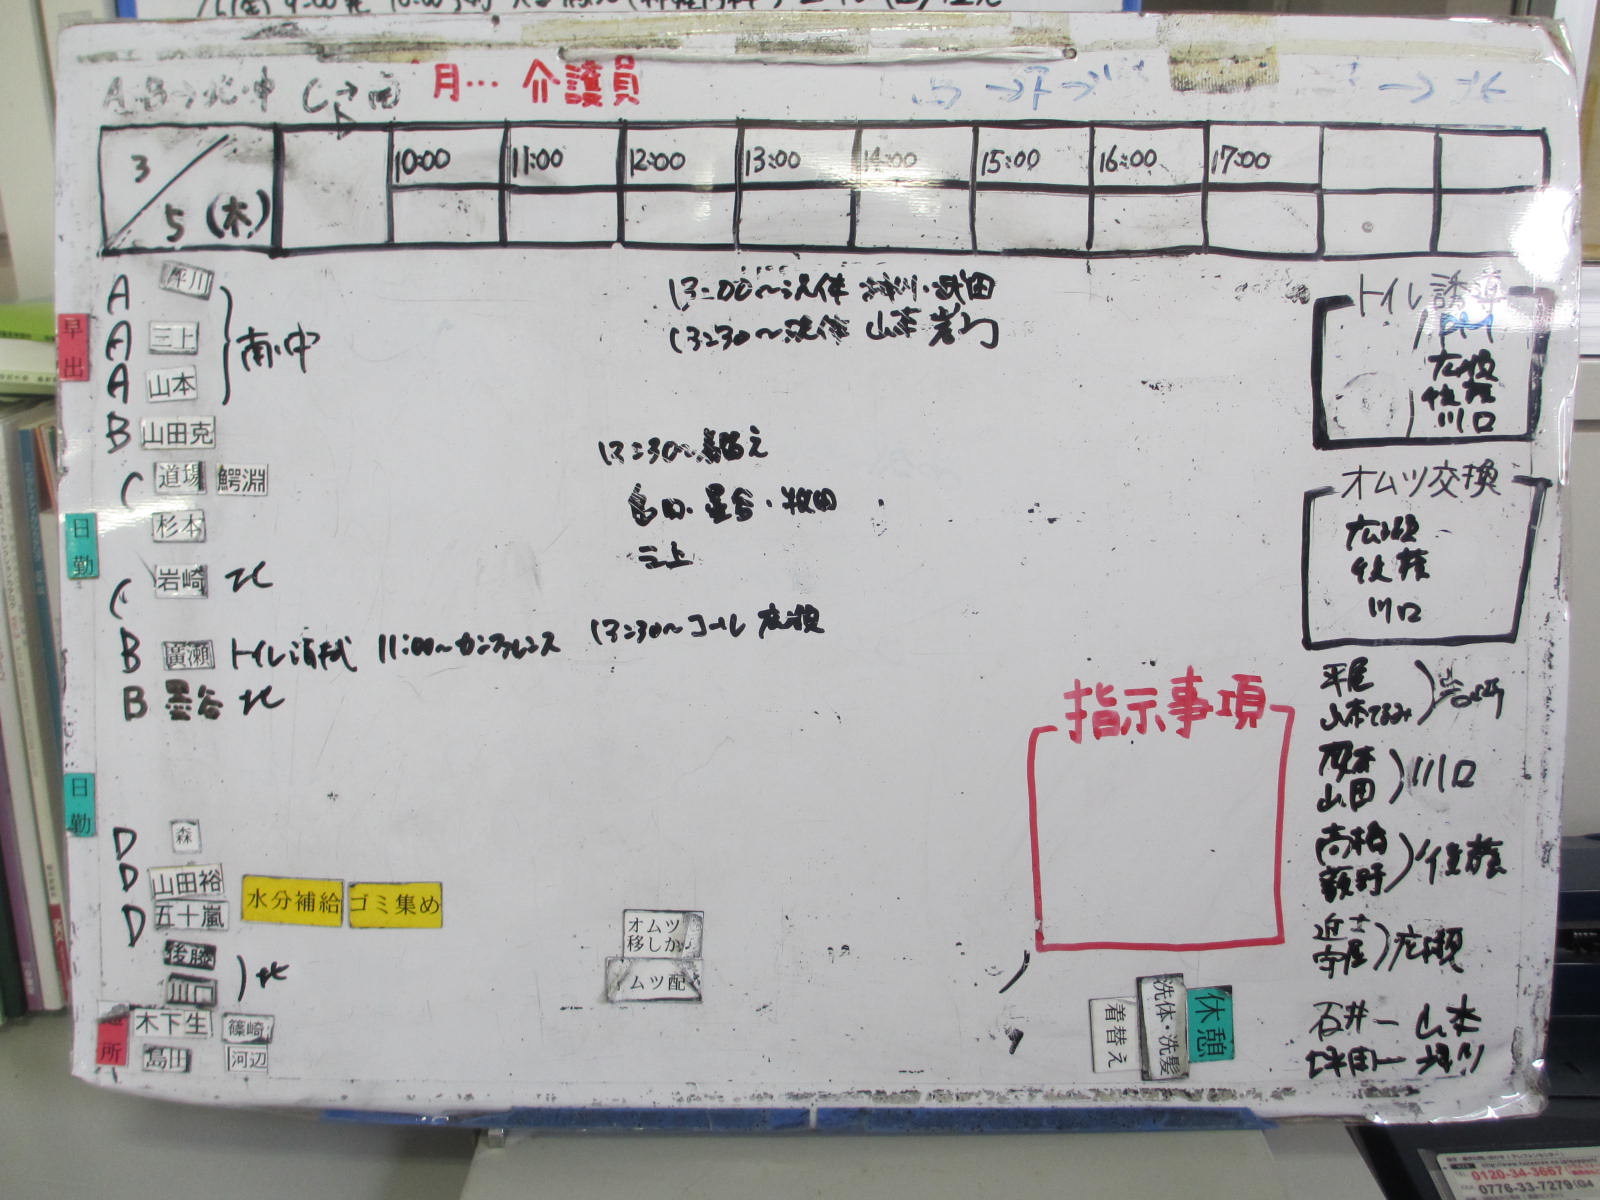 月… 介護員
3/5 (木)
10:00 11:00 12:00 13:00 14:00 15:00 16:00 17:00
早出
A 坪川
A 三上
A 山本
南・中
B 山田克
C 道場 鰐淵
日勤
杉本
C 岩崎 北
B 廣瀬 トイレ清拭 11:00〜カンファレンス 13:30〜コール 広瀬
B 墨谷 北
日勤
D 森
D 山田裕
D 五十嵐
水分補給 ゴミ集め
後藤
川口
北
所
木下生 篠崎
島田 河辺
13:00〜洗体
13:30〜洗体 山本 岩
13:30〜着替え
島田・墨谷・牧田
三上
オムツ移しか
ムツ配
トイレ誘導
PM
広瀬
佐藤
川口
オムツ交換
広瀬
佐藤
川口
指示事項
平尾
山本てるみ
岩崎
山田
川口
高橋
荻野
佐藤
守屋
広瀬
石井ー山本
坪田ー坪川
休憩
洗体・洗髪
着替え
0120-34-3667
0776-33-7279